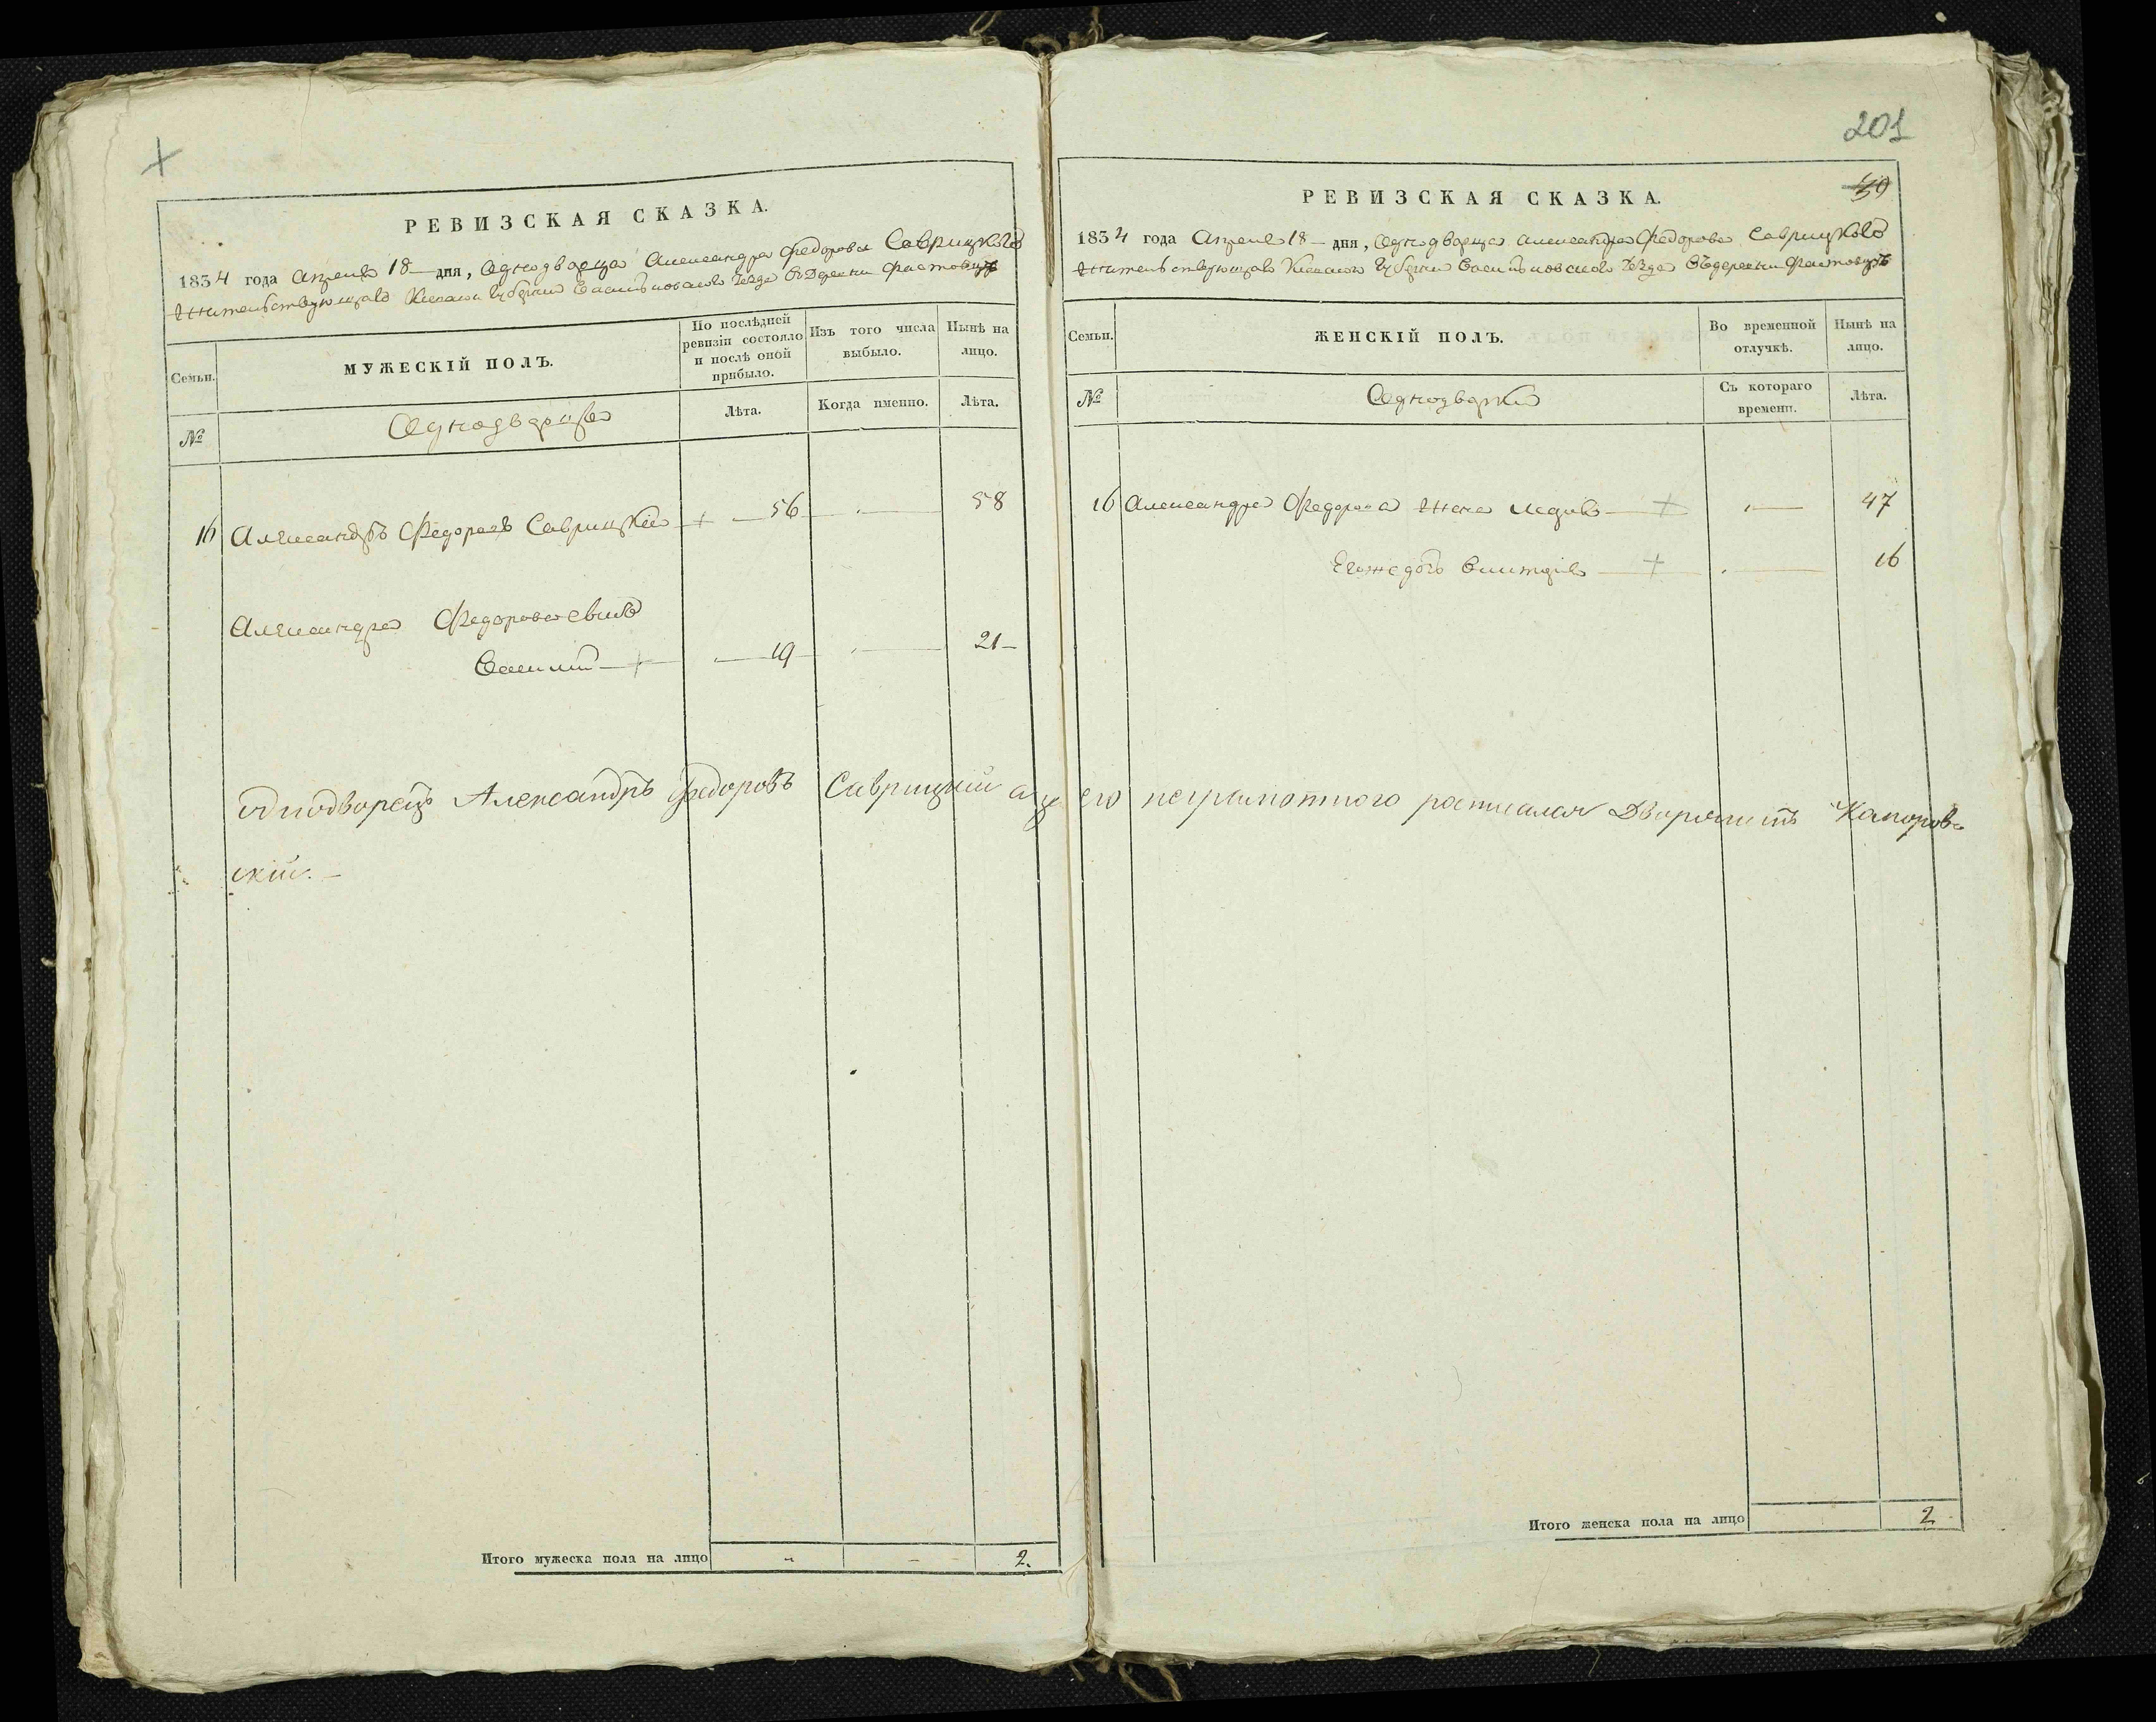 201
39
РЕВИЗСКАЯ СКАЗКА.
1834 года Апреля 18 дня, Однодворца Александра Федорова Саврицкого
Жительствующаго Киевской Губернии Васильковского уезда въ деревни Фастовцѣ
Семьи.
МУЖЕСКІЙ ПОЛЪ.
По послѣдней ревизіи состояло и послѣ оной прибыло.
Изъ того числа выбыло.
Нынѣ на лицо.
№
Однодворцы
Лѣта.
Когда именно.
Лѣта.
16 Александръ Федоровъ Саврицкій 56 58
Александра Федорова сынъ
Василий 19 21
Однодворецъ Александръ Федоровъ Саврицкий а за его неграмотного росписался Дворянинъ Каноров-
ский.
Итого мужеска пола на лицо 2.
РЕВИЗСКАЯ СКАЗКА.
1834 года Апреля 18 дня, Однодворца Александра Федорова Саврицкого
Жительствующаго Киевской Губернии Васильковского уезда Въ деревни Фастовцѣ
Семьи.
ЖЕНСКІЙ ПОЛЪ.
Во временной отлучкѣ.
Нынѣ на лицо.
№
Однодворки
Съ котораго времени.
Лѣта.
16 Александра Федорова Жена 47
Егожедочь 16
Итого женска пола на лицо 2